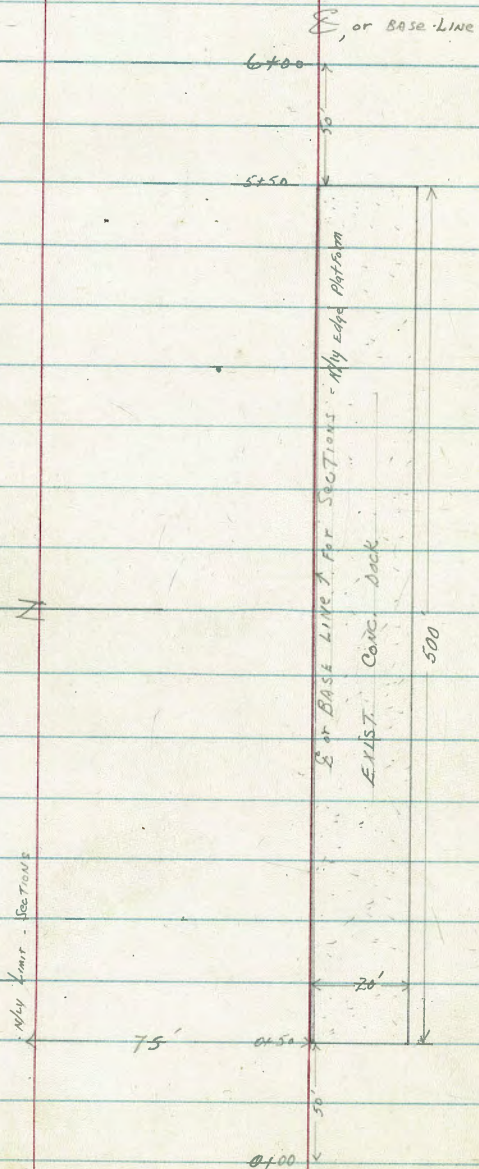 ℄, or BASE-LINE
6+00
50'
5+50
℄ or BASE LINE FOR SECTIONS - N'ly Edge Platform
EXIST. CONC. DOCK
500'
N
N'ly LIMIT - SECTIONS
20'
75'
0+50
50'
0+00